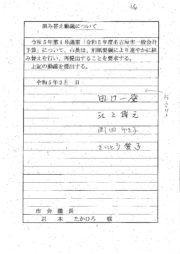 組み替え動議について
令和5年第1号議案「令和5年度名古屋市一般会計
予算」について、市長は、別紙要綱により速やかに組
み替えを行い、再提出することを要求する。
上記の動議を提出する。
令和5年3月　日
田口一登
江上博之
岡田ゆき子
さいとう愛子
市会議長
岩本　たかひろ　様